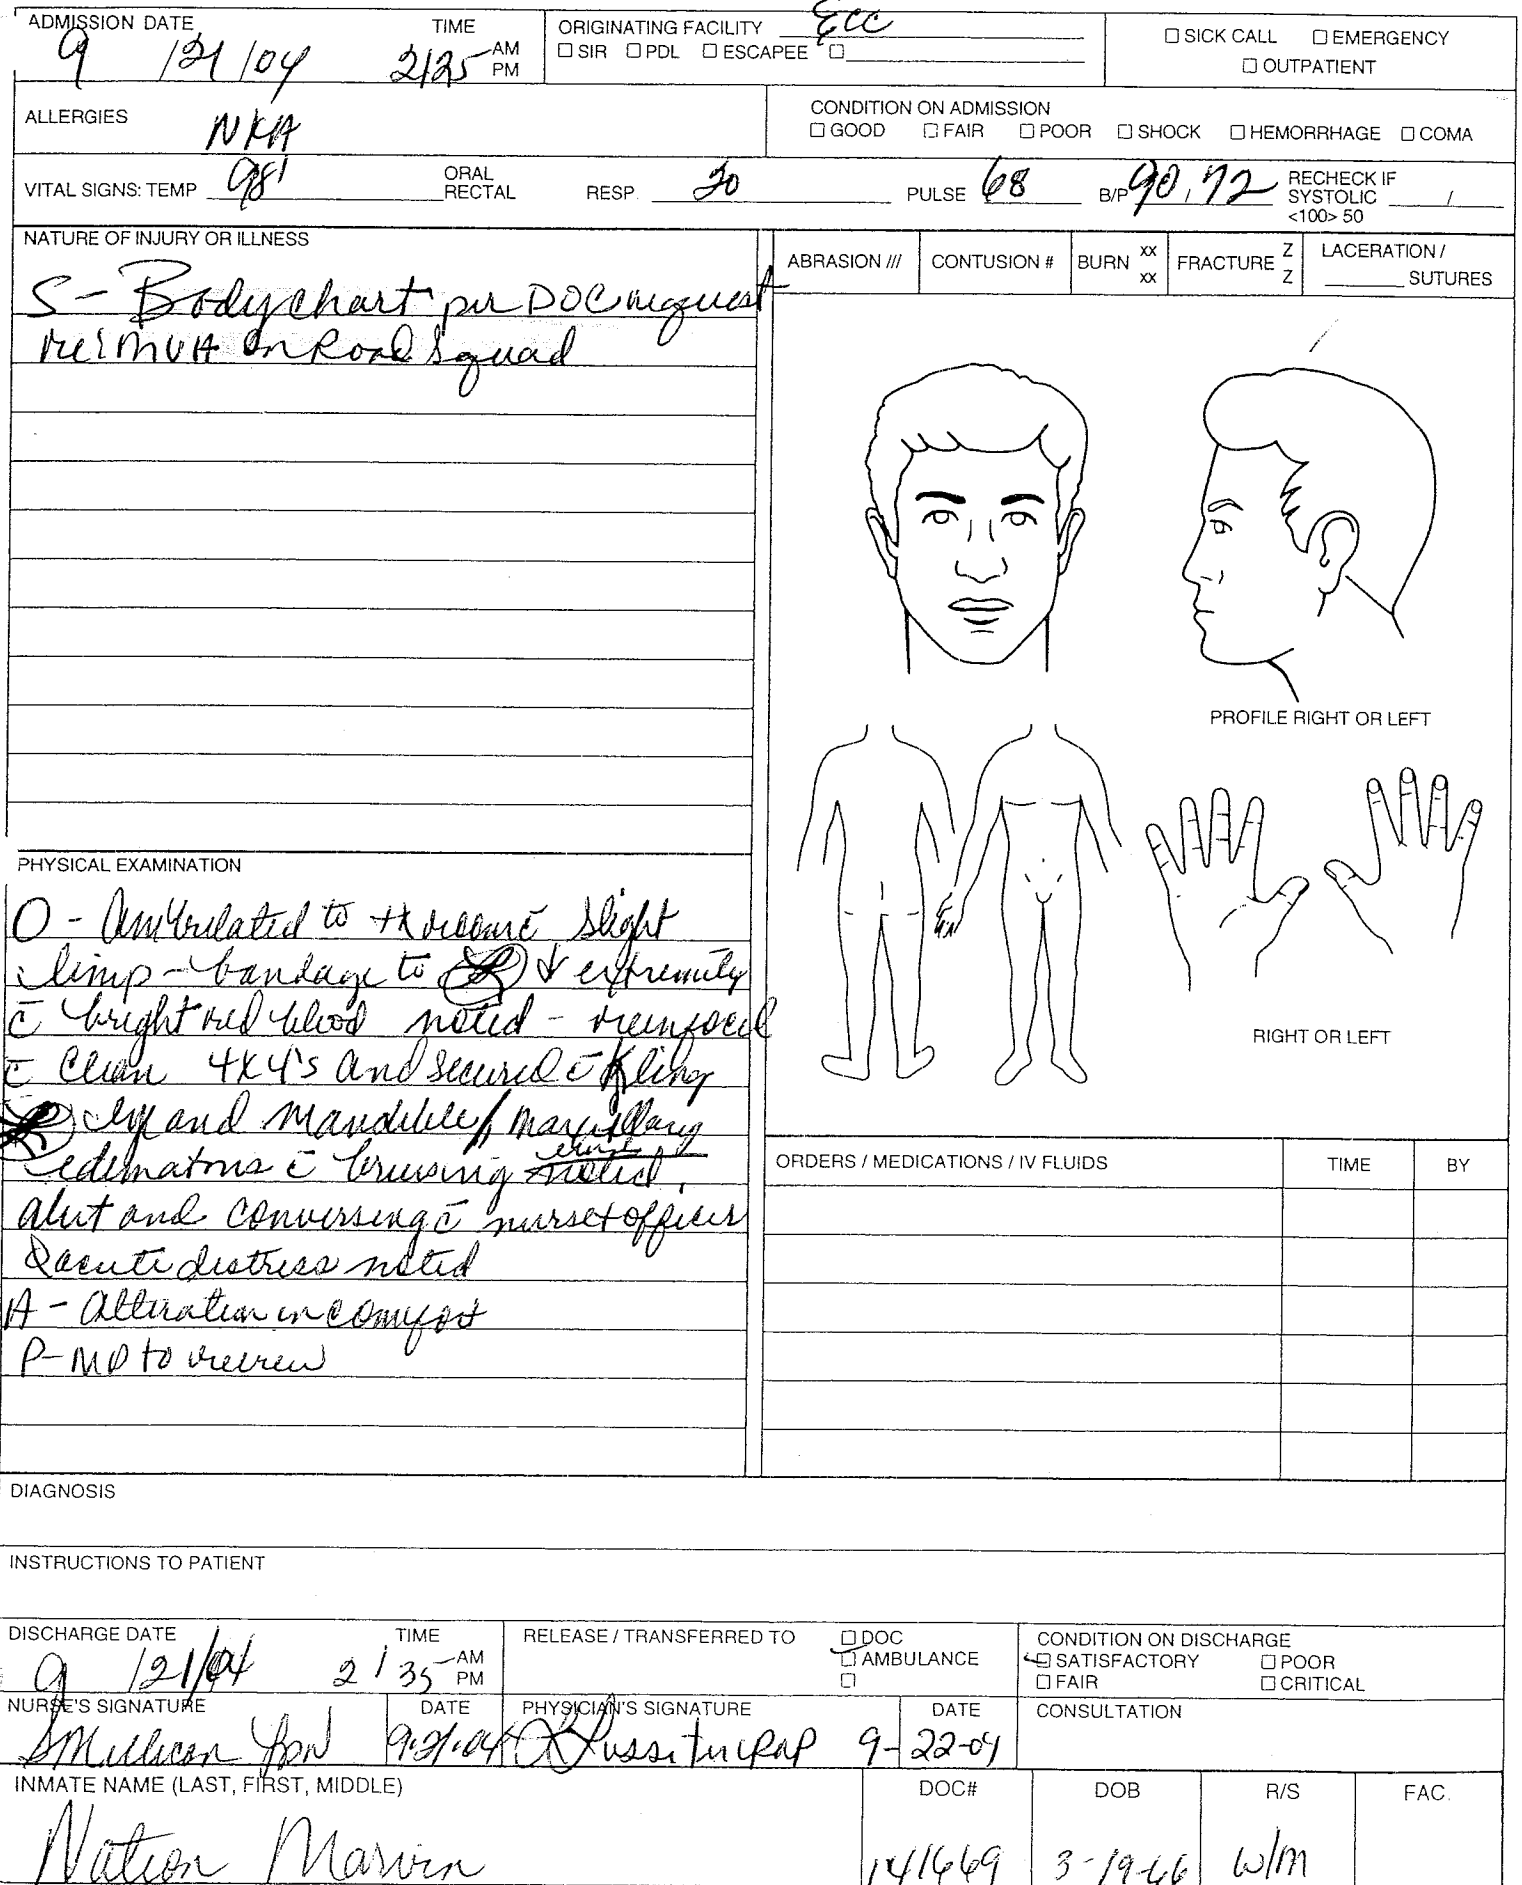 ADMISSION DATE TIME ORIGINATING FACILITY ECC
9 /21/04 2:25 AM PM
☐ SIR ☐ PDL ☐ ESCAPEE ☐
☐ SICK CALL ☐ EMERGENCY
☐ OUTPATIENT
ALLERGIES NKA
CONDITION ON ADMISSION
☐ GOOD ☐ FAIR ☐ POOR ☐ SHOCK ☐ HEMORRHAGE ☐ COMA
VITAL SIGNS: TEMP 98¹ ORAL RECTAL RESP. 20 PULSE 68 B/P 90, 72 RECHECK IF SYSTOLIC / <100> 50
NATURE OF INJURY OR ILLNESS
S - Bodychart per DOC request
re: MVA on Road Squad
ABRASION /// CONTUSION # BURN xx xx FRACTURE Z Z LACERATION / SUTURES
PROFILE RIGHT OR LEFT
RIGHT OR LEFT
PHYSICAL EXAMINATION
O - Ambulated to c̄ slight
limp - bandage to ↓ extremity
c̄ bright red blood noted - reinfoced
c̄ clean 4x4's and secured c̄ Kling
eye and mandible / maxillary
edematous c̄ bruising noted.
alert and conversing c̄ nurse + officer
acute distress noted
A - Alteration in comfort
P - MD to review
ORDERS / MEDICATIONS / IV FLUIDS TIME BY
DIAGNOSIS
INSTRUCTIONS TO PATIENT
DISCHARGE DATE TIME RELEASE / TRANSFERRED TO
9 /21/04 2:35 AM PM
☐ DOC
☐ AMBULANCE
☐
CONDITION ON DISCHARGE
☐ SATISFACTORY ☐ POOR
☐ FAIR ☐ CRITICAL
NURSE'S SIGNATURE DATE PHYSICIAN'S SIGNATURE DATE CONSULTATION
SMillican LPN 9-21-04 9-22-04
INMATE NAME (LAST, FIRST, MIDDLE) DOC# DOB R/S FAC.
Nation Marvin 141669 3-19-66 W/M